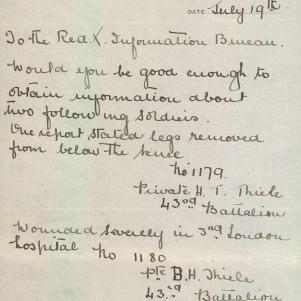 DATE July 19th
To the Red X. Information Bureau.
Would you be good enough to
obtain information about
two following soldiers.
One report stated legs removed
from below the knee
No 1179.
Private H. T. Thiele
43rd Battalion
Wounded severely in 3rd London
hospital No 1180
pte B. H. Thiele
43rd Battalion